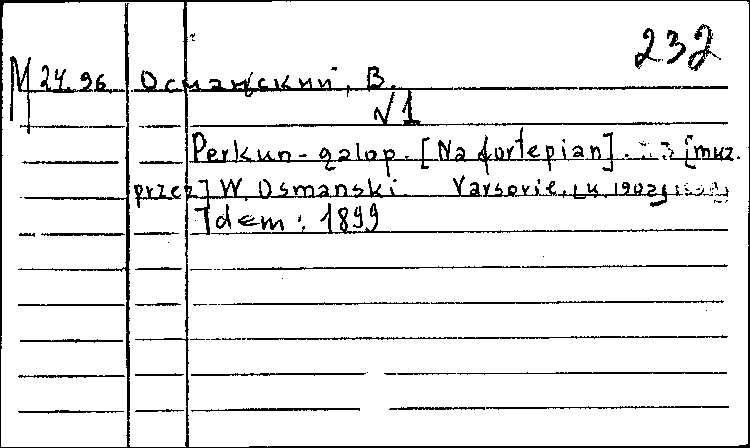 232
М 24.96 Османский, В.
√1
Perkun-galop. [Na fortepian]. [muz.
przez] W. Osmanski. Varsovie,
Idem: 1899